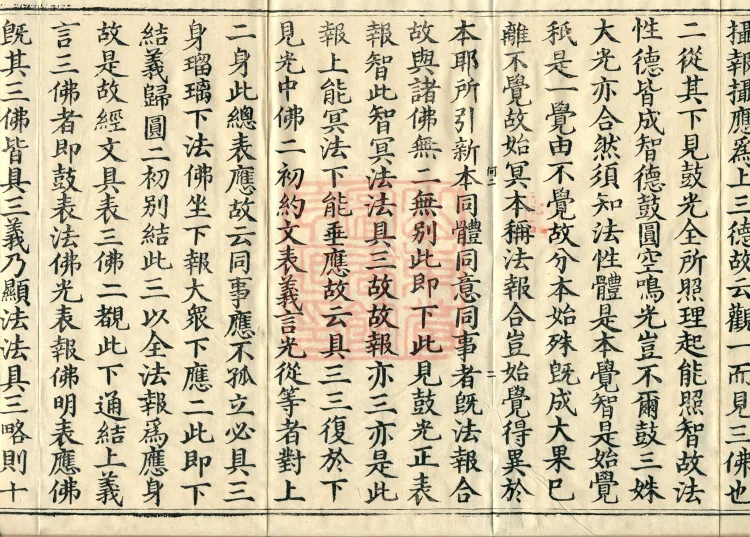 攝報攝應爲上三德故云觀一而見三佛也
二從其下見鼓光全所照理起能照智故法
性德皆成智德鼓圓空鳴光豈不爾鼓三姝
大光亦合然須知法性體是本覺智是始覺
秖是一覺由不覺故分本始殊旣成大果已
離不覺故始冥本稱法報合豈始覺得異於
何二
二
本耶所引新本同體同意同事者旣法報合
故與諸佛無二無別此即下此見鼓光正表
報智此智冥法法具三故故報亦三亦是此
報上能冥法下能垂應故云具三三復於下
見光中佛二初約文表義言光從等者對上
二身此總表應故云同事應不孤立必具三
身瑠璃下法佛坐下報大衆下應二此即下
結義歸圓二初別結此三以全法報爲應身
故是故經文具表三佛二覩此下通結上義
言三佛者即鼓表法佛光表報佛明表應佛
旣其三佛皆具三義乃顯法法具三略則十